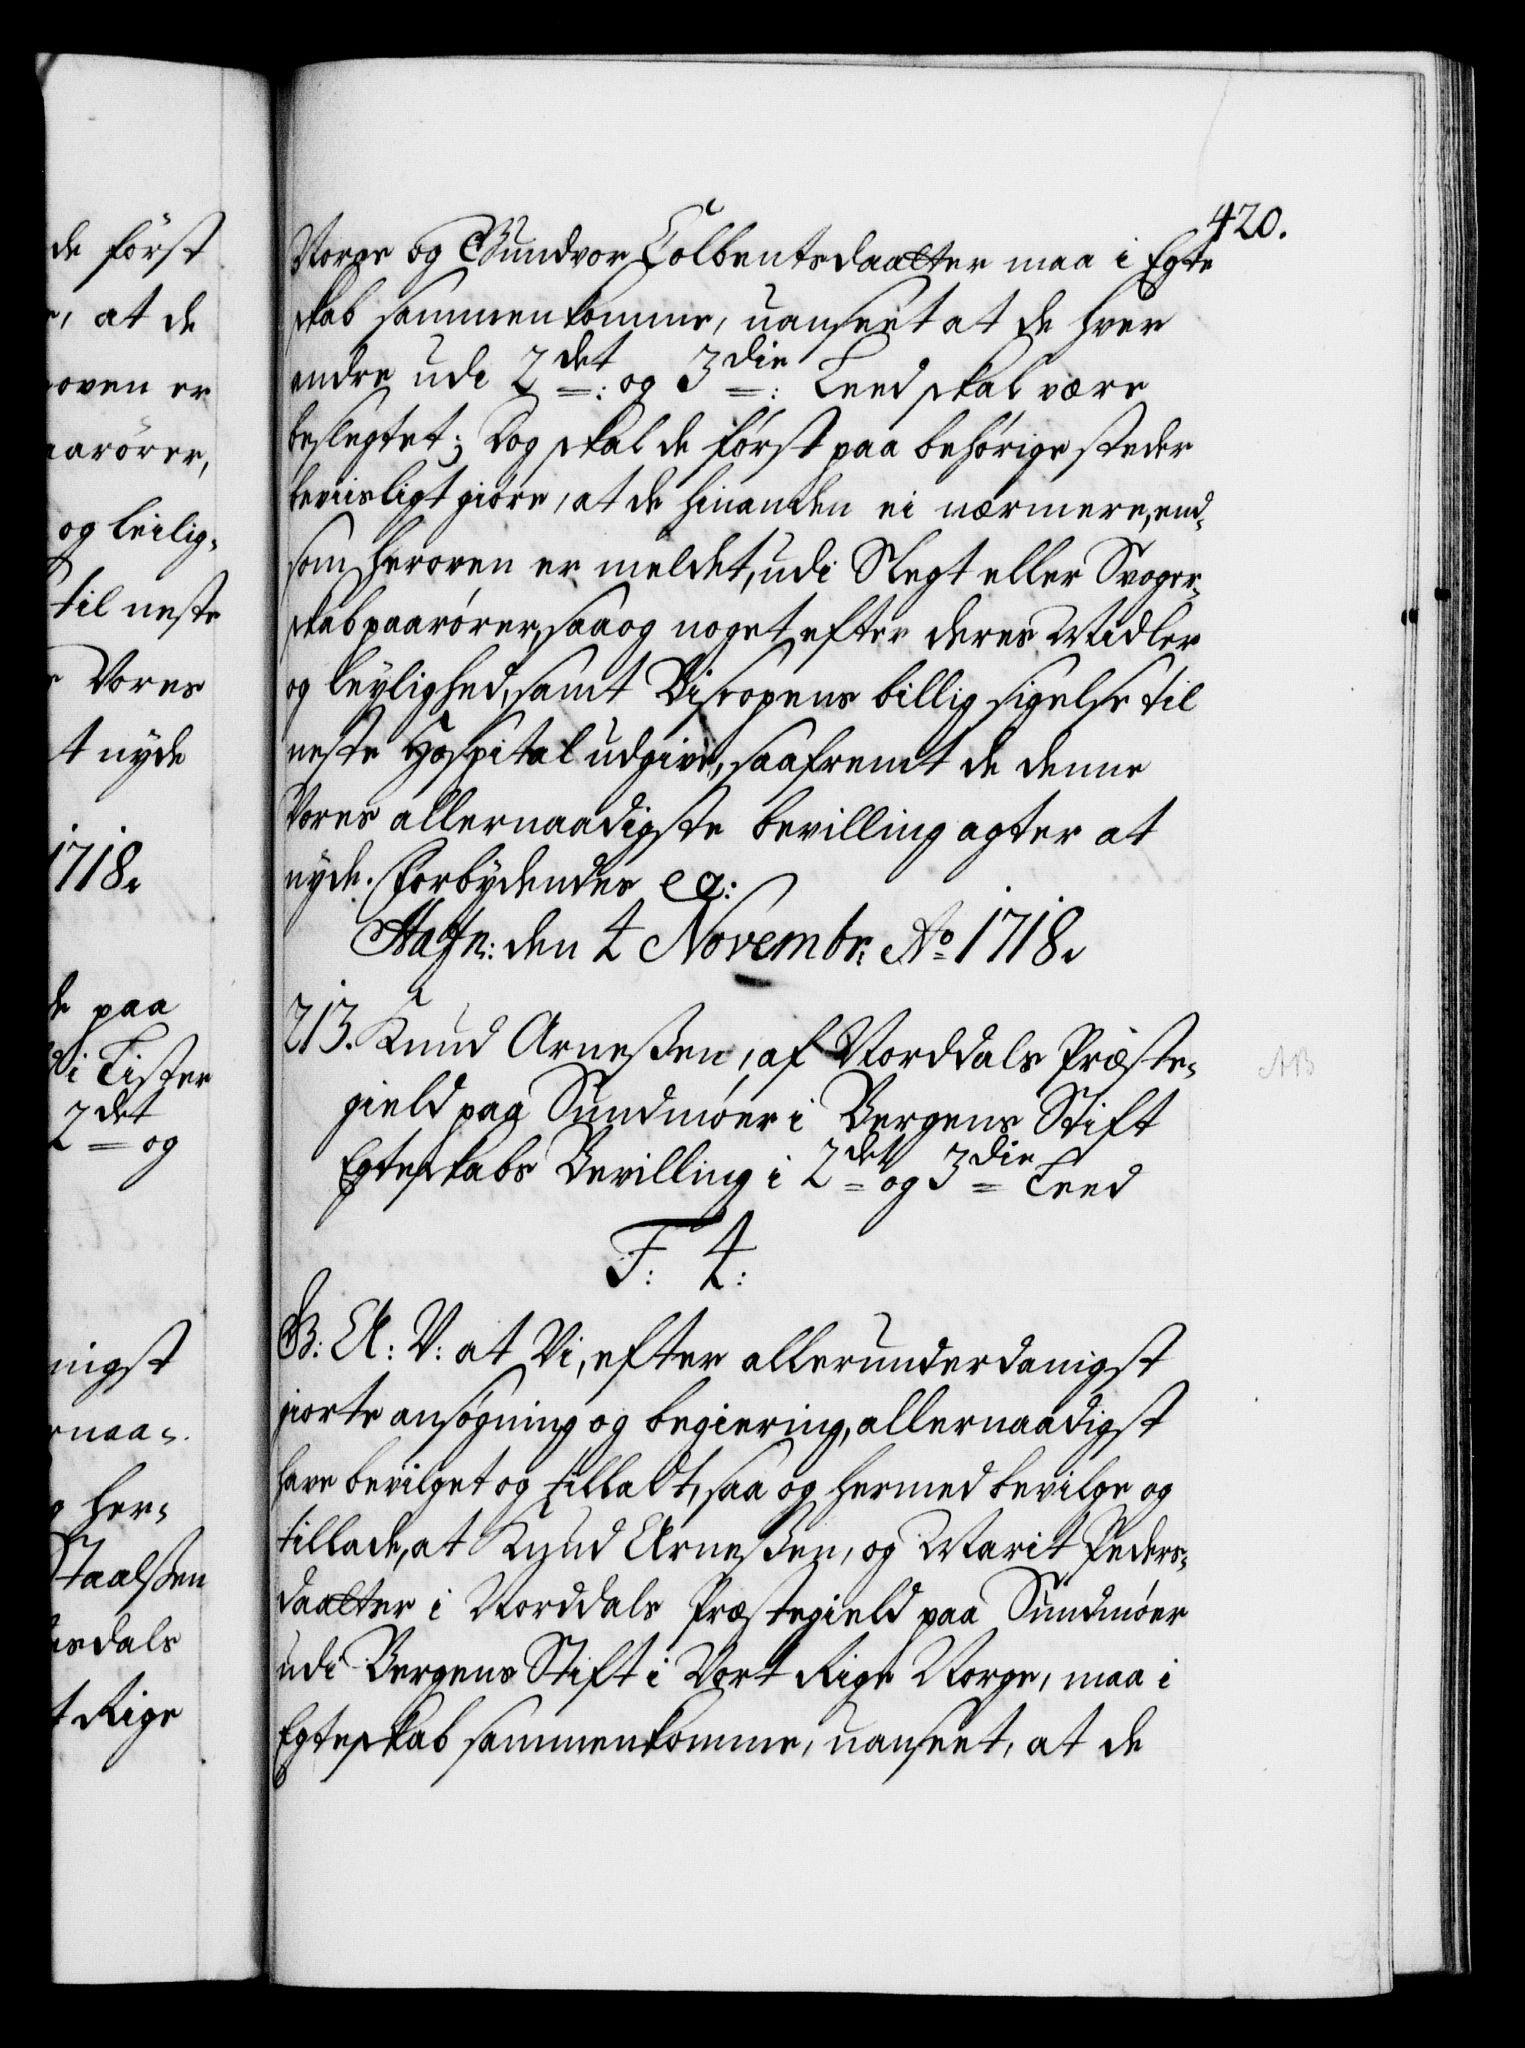 420.
Norge og Gundvor Tolbentsdaatter maa i Egte
skab sammenkomme, uanseet at de hver
andre udi 2det og 3die Leed skal være
beslegtet; Dog skal de först paa behörige steder
beviisligt giöre, at de hinanden ei nærmere, end-
som heroven er meldet, udi Slegt eller Svoger-
skab paarörer, saa og noget efter deres Midler
og leylighed, samt Biscopens billig sigelse til
neste Hospital udgive, saafremt de denne
Vores allernaadigste bevilling agter at
nyde. Forbydendes etc:
Hafn: den 4 Novembr: Ao 1718.
213. Knud Arneßen, af Norddals Præste-
gield paa Sundmöer i Bergens Stift
Egteskabs Bevilling i 2det og 3die Leed
F: 4:
G: A: V: at Vi, efter allerunderdanigst
giorte ansögning og begiering, allernaadigst
have bevilget og tilladt, saa og hermed bevilge og
tillade, at Knud Arneßen, og Marit Peders-
daatter i Norddals Præstegield paa Sundmöer
udi Bergens Stift i Vort Rige Norge, maa i
Egteskab sammenkomme, uanseet, at de
AB
de först
, at de
oven er
aarörer,
og leilig-
til neste
Vores
t nyde
1718.
de paa
i Lister
2det og
nigst
rnaa-
g her-
Staalßen
esdals
t Rige